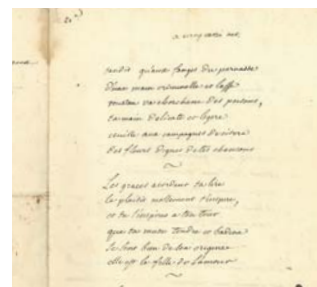 tandis qu'aux fanges du parnasse
d'une main criminelle et lasse
va cherchant des poisons,
ta main delicate et legere
cueille aux campagnes de
des fleurs dignes de tes chansons
Les graces accordent ta lire
le plaisir mollement
et tu l'inspires a ton tour
que ta muse tendre et badine
se sent bien de son origine
elle est la fille de l'amour